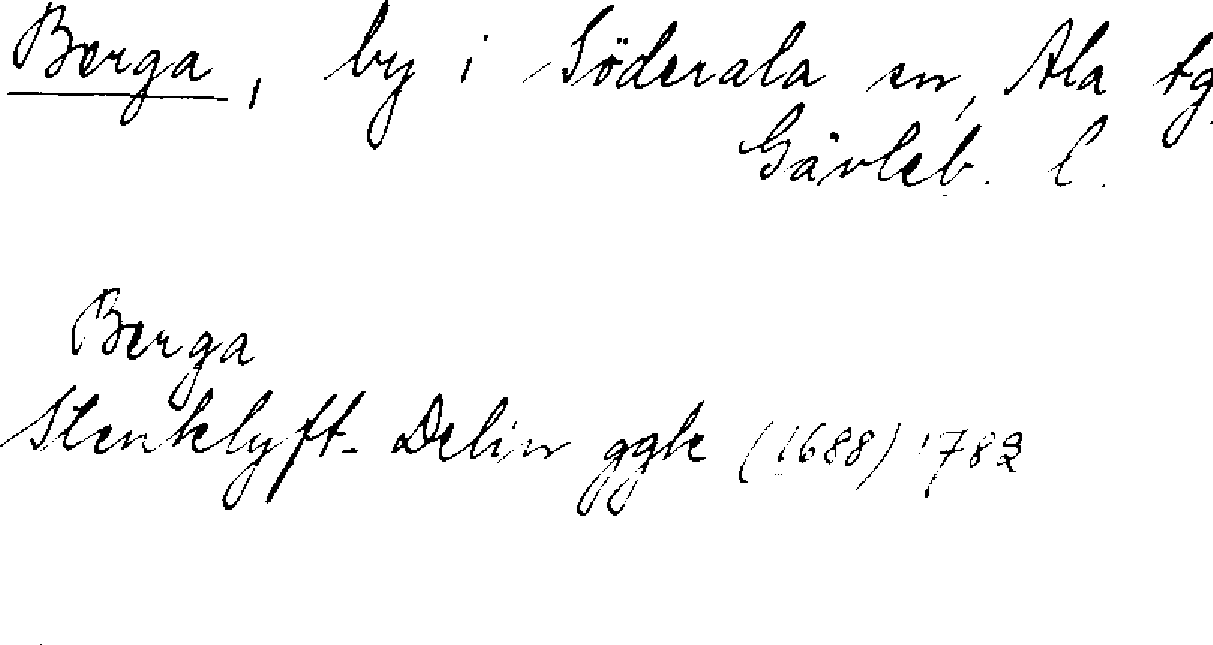 Berga, by i Söderala sn, Ala tg
Gävleb. l.
Berga
Stenklyft- Delin ggk (1688) 1782